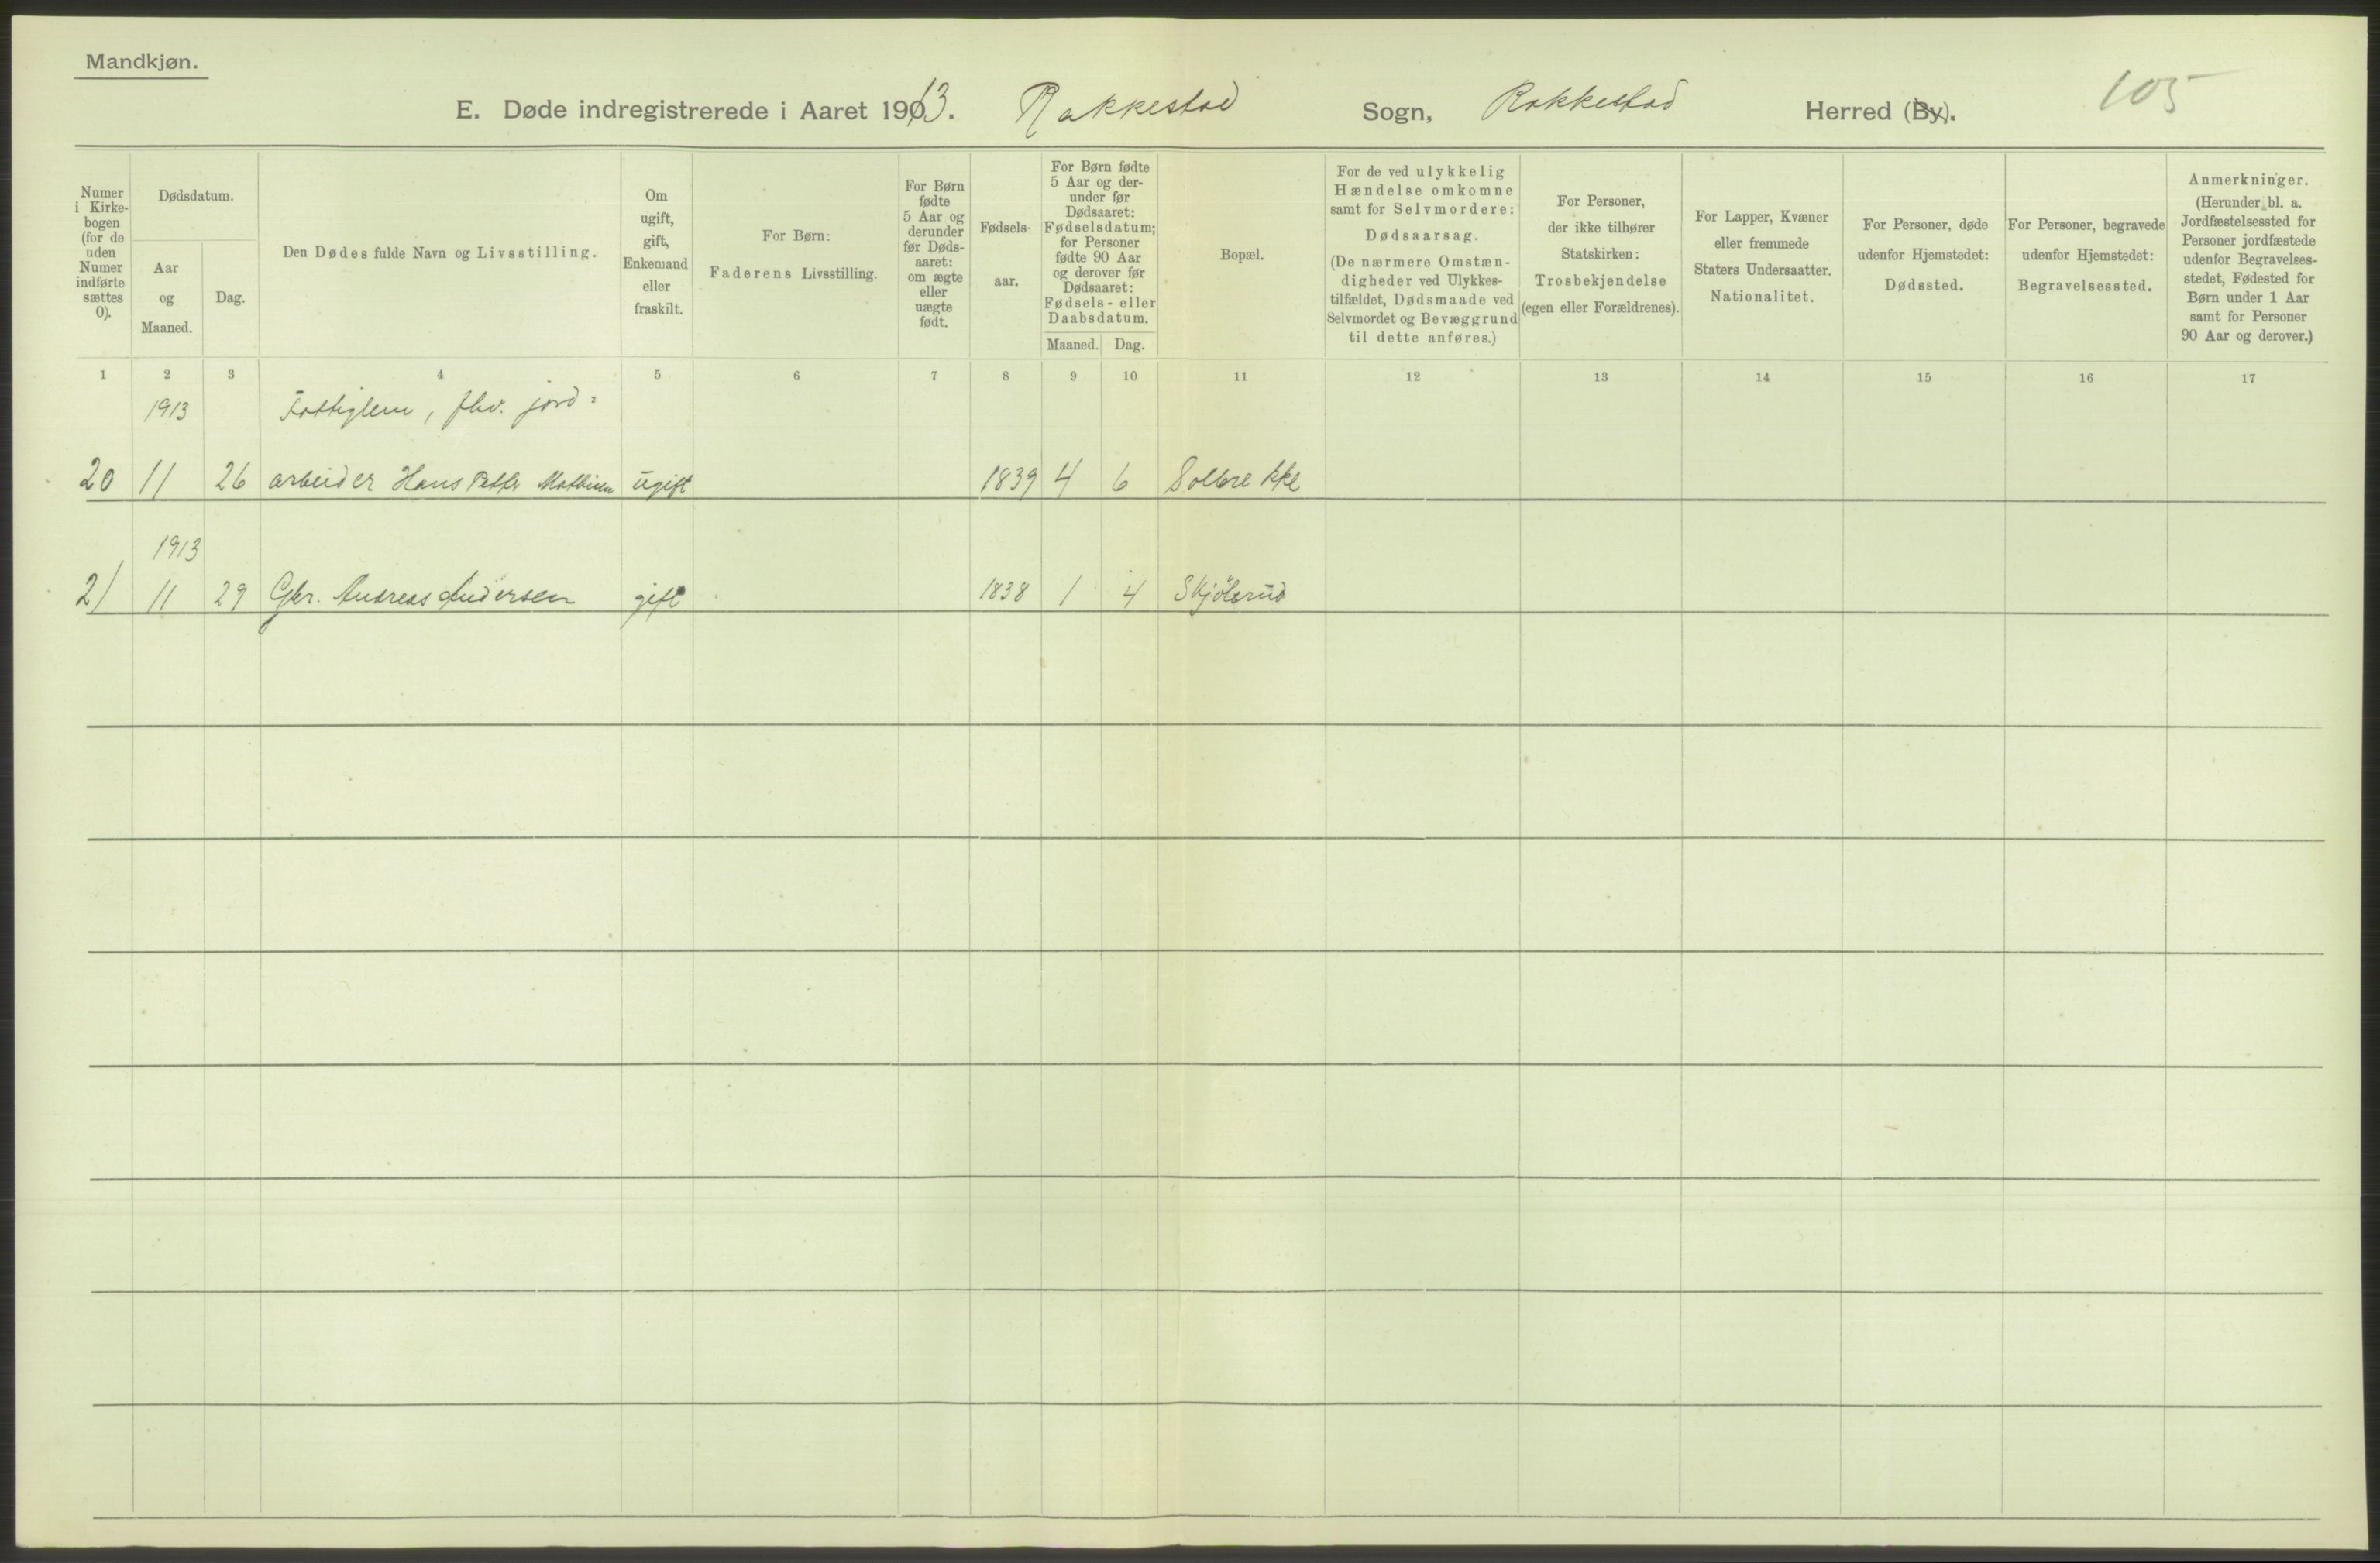 Mandkjøn.
E. Døde indregistrerede i Aaret 1913. Rakkestad Sogn, Rakkestad Herred (By). 105
Numer
i Kirke-
bogen
(for de
uden
Numer
indførte
sættes
0).
Dødsdatum.
Aar
og
Maaned.
Dag.
Den Dødes fulde Navn og Livsstilling.
Om
ugift,
gift,
Enkemand
eller
fraskilt.
For Børn:
Faderens Livsstilling.
For Børn
fødte
5 Aar og
derunder
før Døds-
aaret:
om ægte
eller
uægte
født.
Fødsels-
aar.
For Børn fødte
5 Aar og der-
under før
Dødsaaret:
Fødselsdatum;
for Personer
fødte 90 Aar
og derover før
Dødsaaret:
Fødsels- eller
Daabsdatum.
Maaned. Dag.
Bopæl.
For de ved ulykkelig
Hændelse omkomne
samt for Selvmordere:
Dødsaarsag.
(De nærmere Omstæn-
digheder ved Ulykkes-
tilfældet, Dødsmaade ved
Selvmordet og Bevæggrund
til dette anføres.)
For Personer,
der ikke tilhører
Statskirken:
Trosbekjendelse
(egen eller Forældrenes).
For Lapper, Kvæner
eller fremmede
Staters Undersaatter.
Nationalitet.
For Personer, døde
udenfor Hjemstedet:
Dødssted.
For Personer, begravede
udenfor Hjemstedet:
Begravelsessted.
Anmerkninger.
(Herunder bl. a.
Jordfæstelsessted for
Personer jordfæstede
udenfor Begravelses-
stedet, Fødested for
Børn under 1 Aar
samt for Personer
90 Aar og derover.)
1 2 3 4 5 6 7 8 9 10 11 12 13 14 15 16 17
1913 Fattiglem, fhv. jord=
20 11 26 arbeider Hans Petter Mathisen ugift 1839 4 6 Solbrekke
1913
21 11 29 Gbr. Andreas Andersen gift 1838 1 4